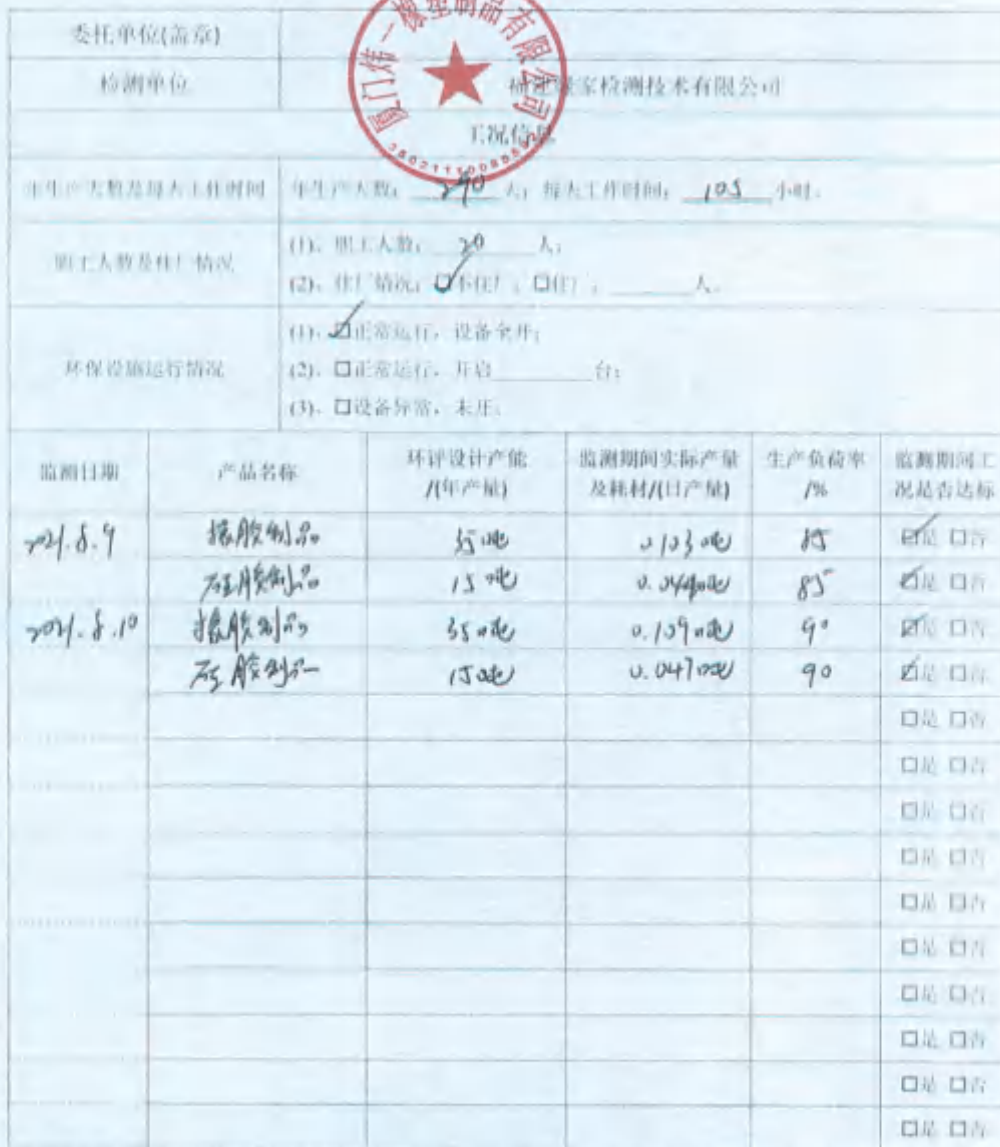 厦门炜一橡塑制品有限公司
委托单位(盖章)
检测单位 福建 家检测技术有限公司
工况信息
年生产天数及每天工作时间 年生产天数: 290 天; 每天工作时间: 10.5 小时。
职工人数及住厂情况
(1)、职工人数: 20 人;
(2)、住厂情况: ☑不住厂; □住厂, ______人。
环保设施运行情况
(1)、☑正常运行, 设备全开;
(2)、□正常运行, 开启______台;
(3)、□设备异常, 未开。
监测日期 产品名称 环评设计产能/(年产量) 监测期间实际产量及耗材/(日产量) 生产负荷率/% 监测期间工况是否达标
2021.8.9 橡胶制品 35吨 0.103吨 85 ☑是 □否
硅胶制品 15吨 0.0440吨 85 ☑是 □否
2021.8.10 橡胶制品 35吨 0.109吨 90 ☑是 □否
硅胶制品 15吨 0.047吨 90 ☑是 □否
□是 □否
□是 □否
□是 □否
□是 □否
□是 □否
□是 □否
□是 □否
□是 □否
□是 □否
□是 □否